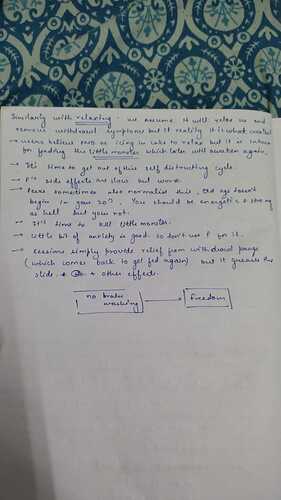 Similarly with relaxing - we assume it will relax us and
remove withdrawal symptoms but it reality it is what created
→ users believe PMO as icing in cake to relax but it is
for feeding the little monster which later will awaken again.
→ It's time to get out of this self distructing cycle.
→ P's side effects are slow but worse.
→ Peers sometimes also normalise this, old age doesn't
begin in your 20's. You should be energetic & strong
as hell but your not.
→ It's time to kill little monster.
→ Little bit of anxiety is good so don't use P for it.
→ sessions simply provide relief from withdrawal pangs
(which comes back to get fed again) but it greases the
slide & + other effects.
no brain washing → freedom